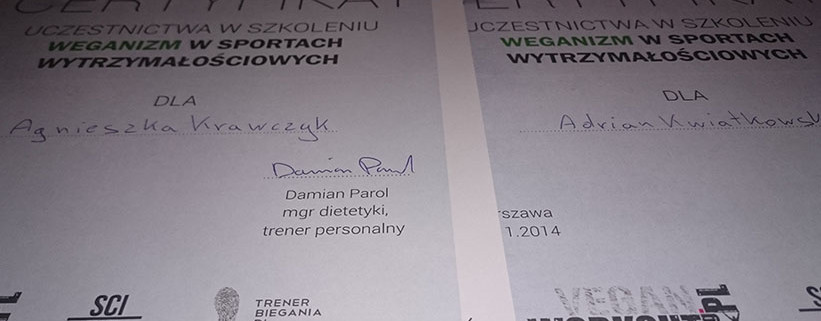 CERTYFIKAT
UCZESTNICTWA W SZKOLENIU
WEGANIZM W SPORTACH
WYTRZYMAŁOŚCIOWYCH
DLA
Agnieszka Krawczyk
Damian Parol
Damian Parol
mgr dietetyki,
trener personalny
SCI
TRENER
BIEGANIA
ERTYFIKAT
UCZESTNICTWA W SZKOLENIU
WEGANIZM W SPORTACH
WYTRZYMAŁOŚCIOWYCH
DLA
Adrian Kwiatkowsk
rszawa
1.2014
VEGAN
WORKOUT.PL